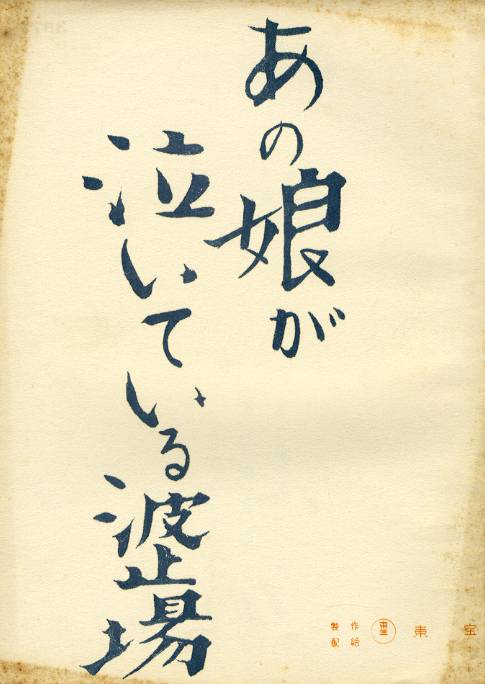 あの娘が
泣いている波止場
製作
配給
東宝